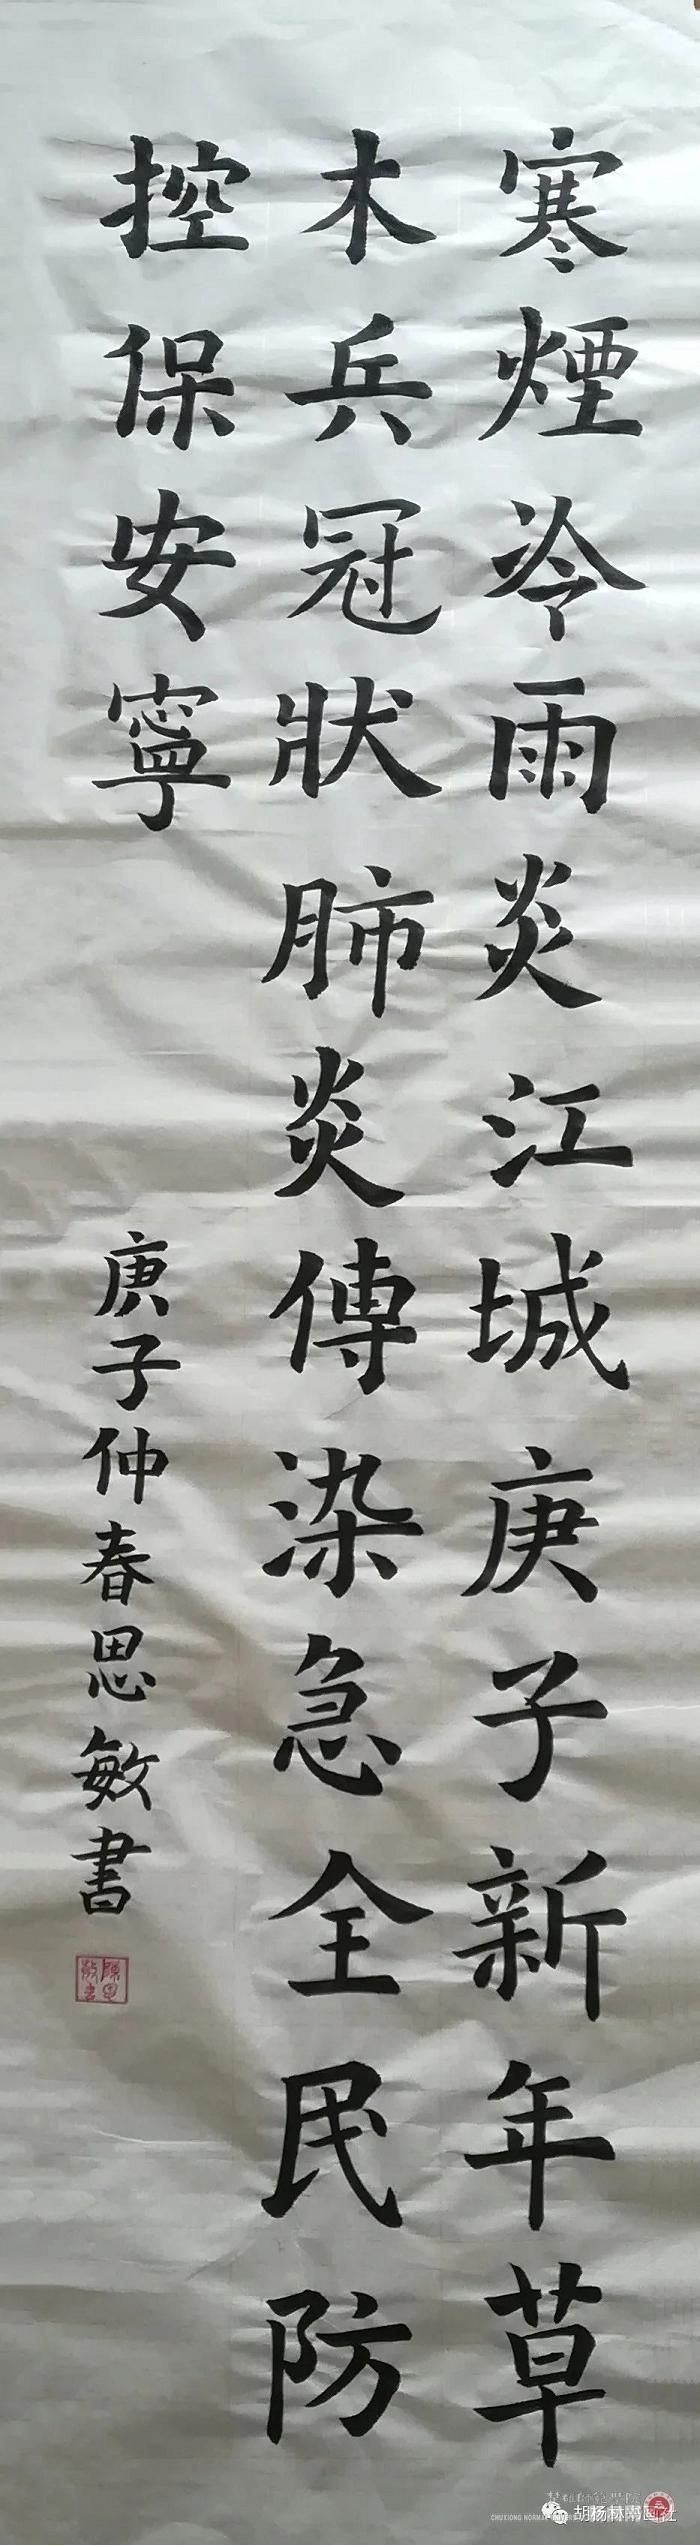 寒煙冷雨炎江城庚子新年草
木兵冠狀肺炎傳染急全民防
控保安寧
庚子仲春思敏書
楚雄師範學院
CHUXIONG NORMAL
胡杨林书画社